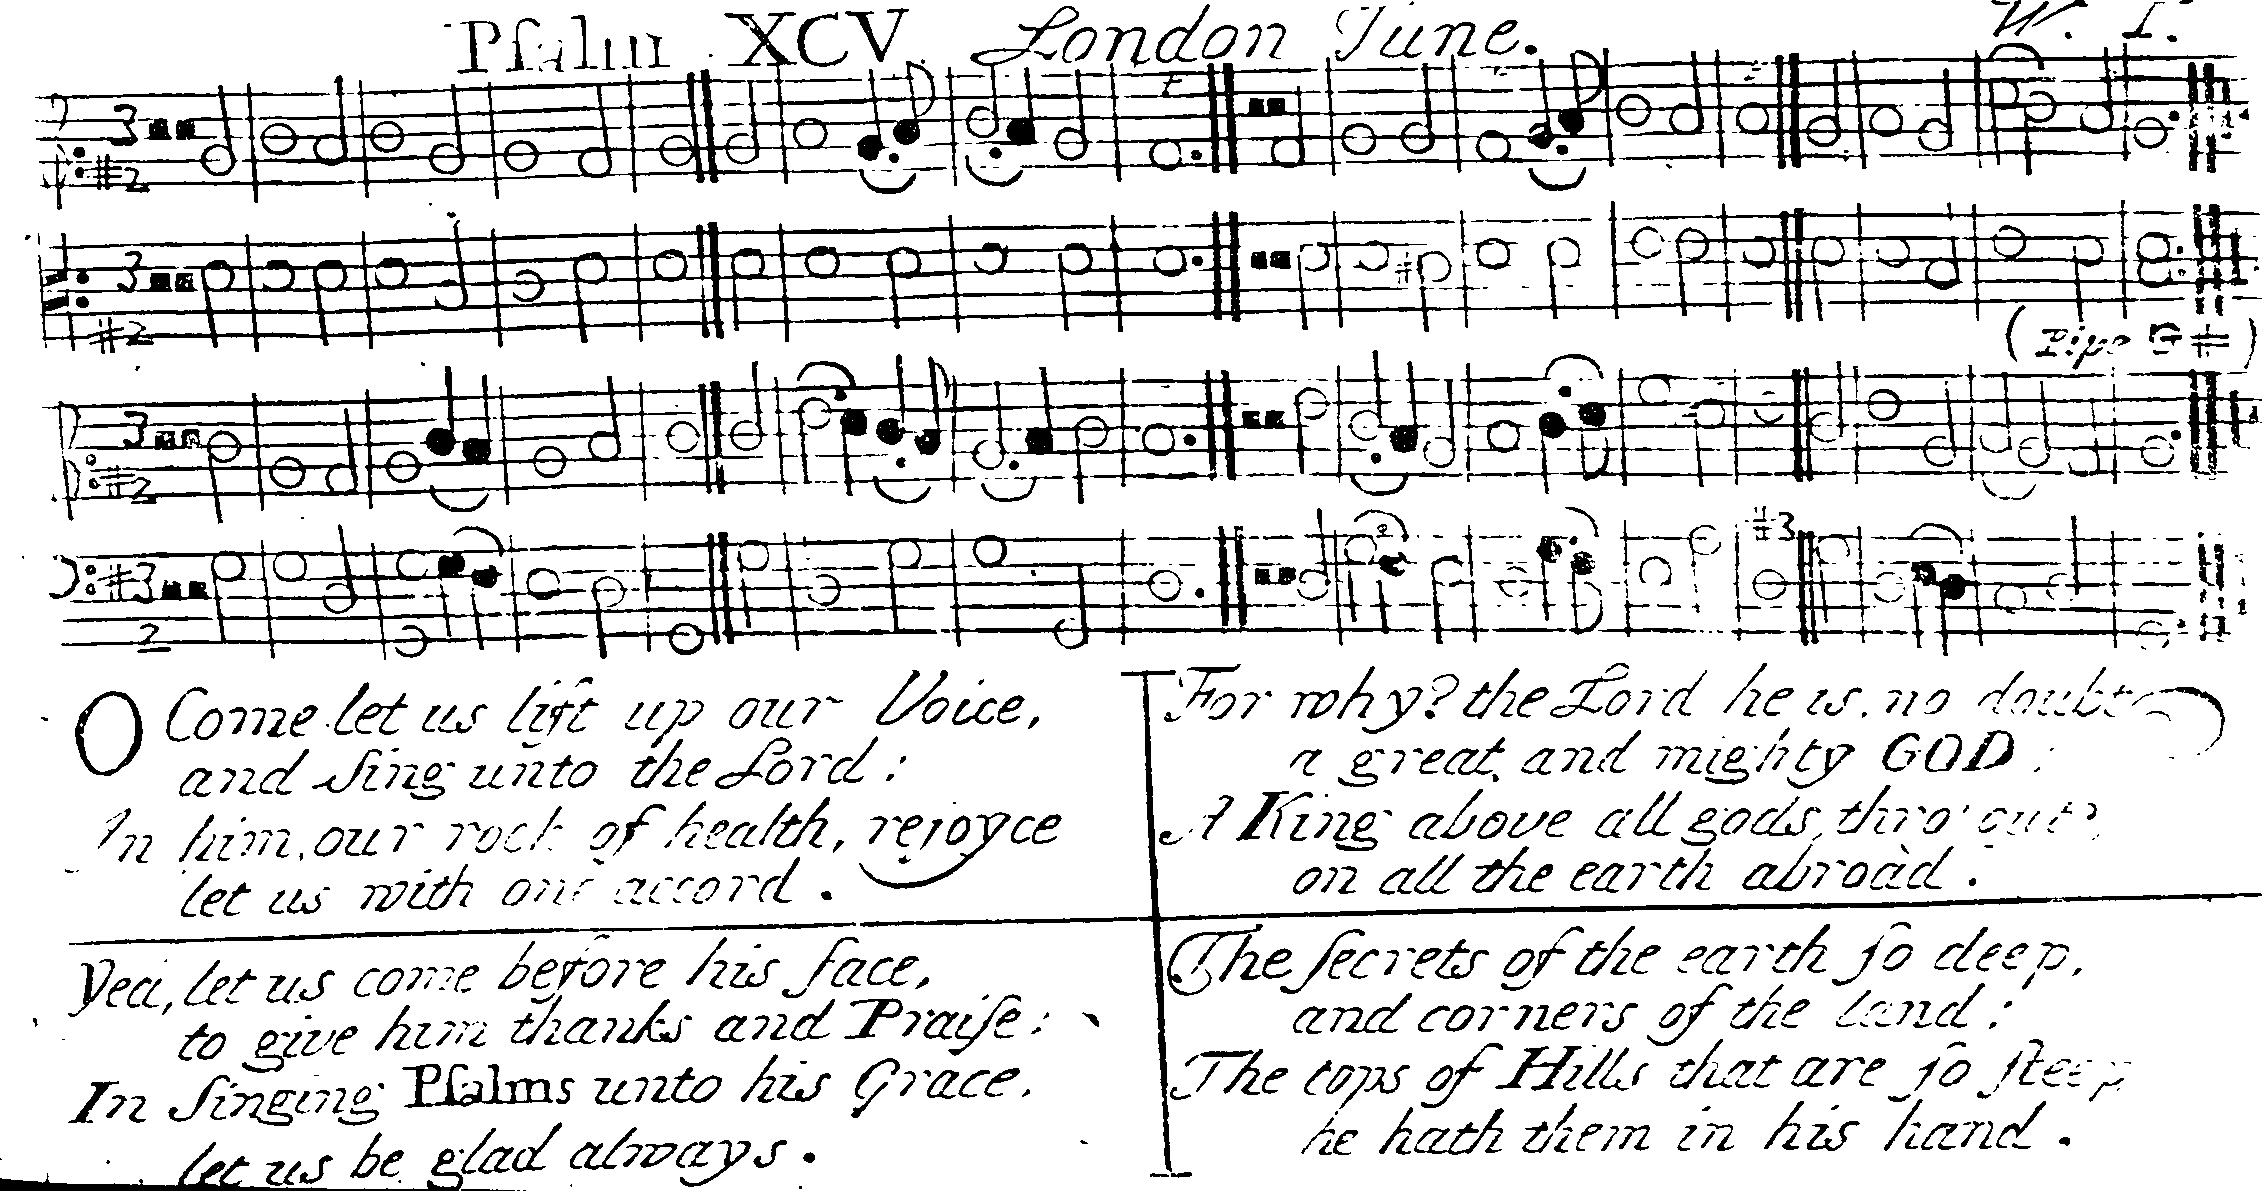 Pſalm XCV London Tune. W. T.
3
2
3
2
(Pipe G #)
3
2
3
2
#3
O Come let us lift up our Voice,
and ſing unto the Lord:
In him, our rock of health, rejoyce
let us with one accord.
For why? the Lord he is, no doubt
a great and mighty GOD:
A King above all gods, thro'out,
on all the earth abroad.
Yea, let us come before his face,
to give him thanks and Praiſe:
In ſinging Pſalms unto his Grace,
let us be glad always.
The ſecrets of the earth ſo deep,
and corners of the land:
The tops of Hills that are ſo ſteep
he hath them in his hand.